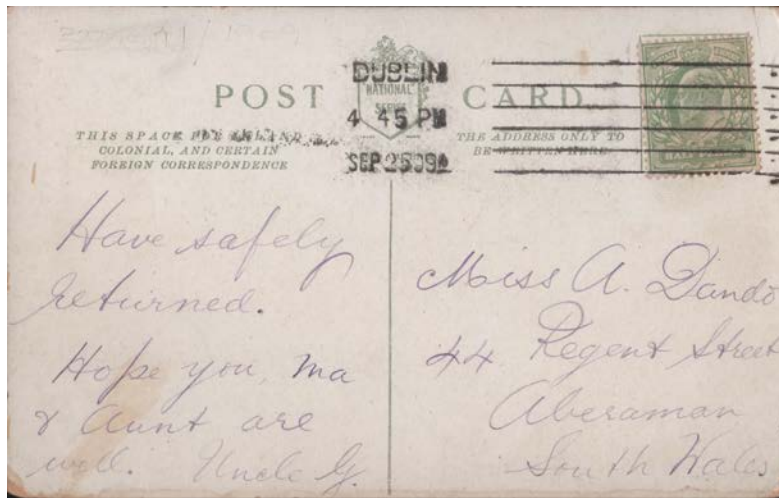 1909
DUBLIN
4 45 PM
SEP 25 09
POST CARD
NATIONAL
SERIES
THIS SPACE FOR INLAND,
COLONIAL, AND CERTAIN
FOREIGN CORRESPONDENCE
THE ADDRESS ONLY TO
BE WRITTEN HERE
HALFPENNY
Have safely
returned.
Hope you, Ma
& Aunt are
well. Uncle G.
Miss A. Dando
44 Regent Street
Aberaman
South Wales